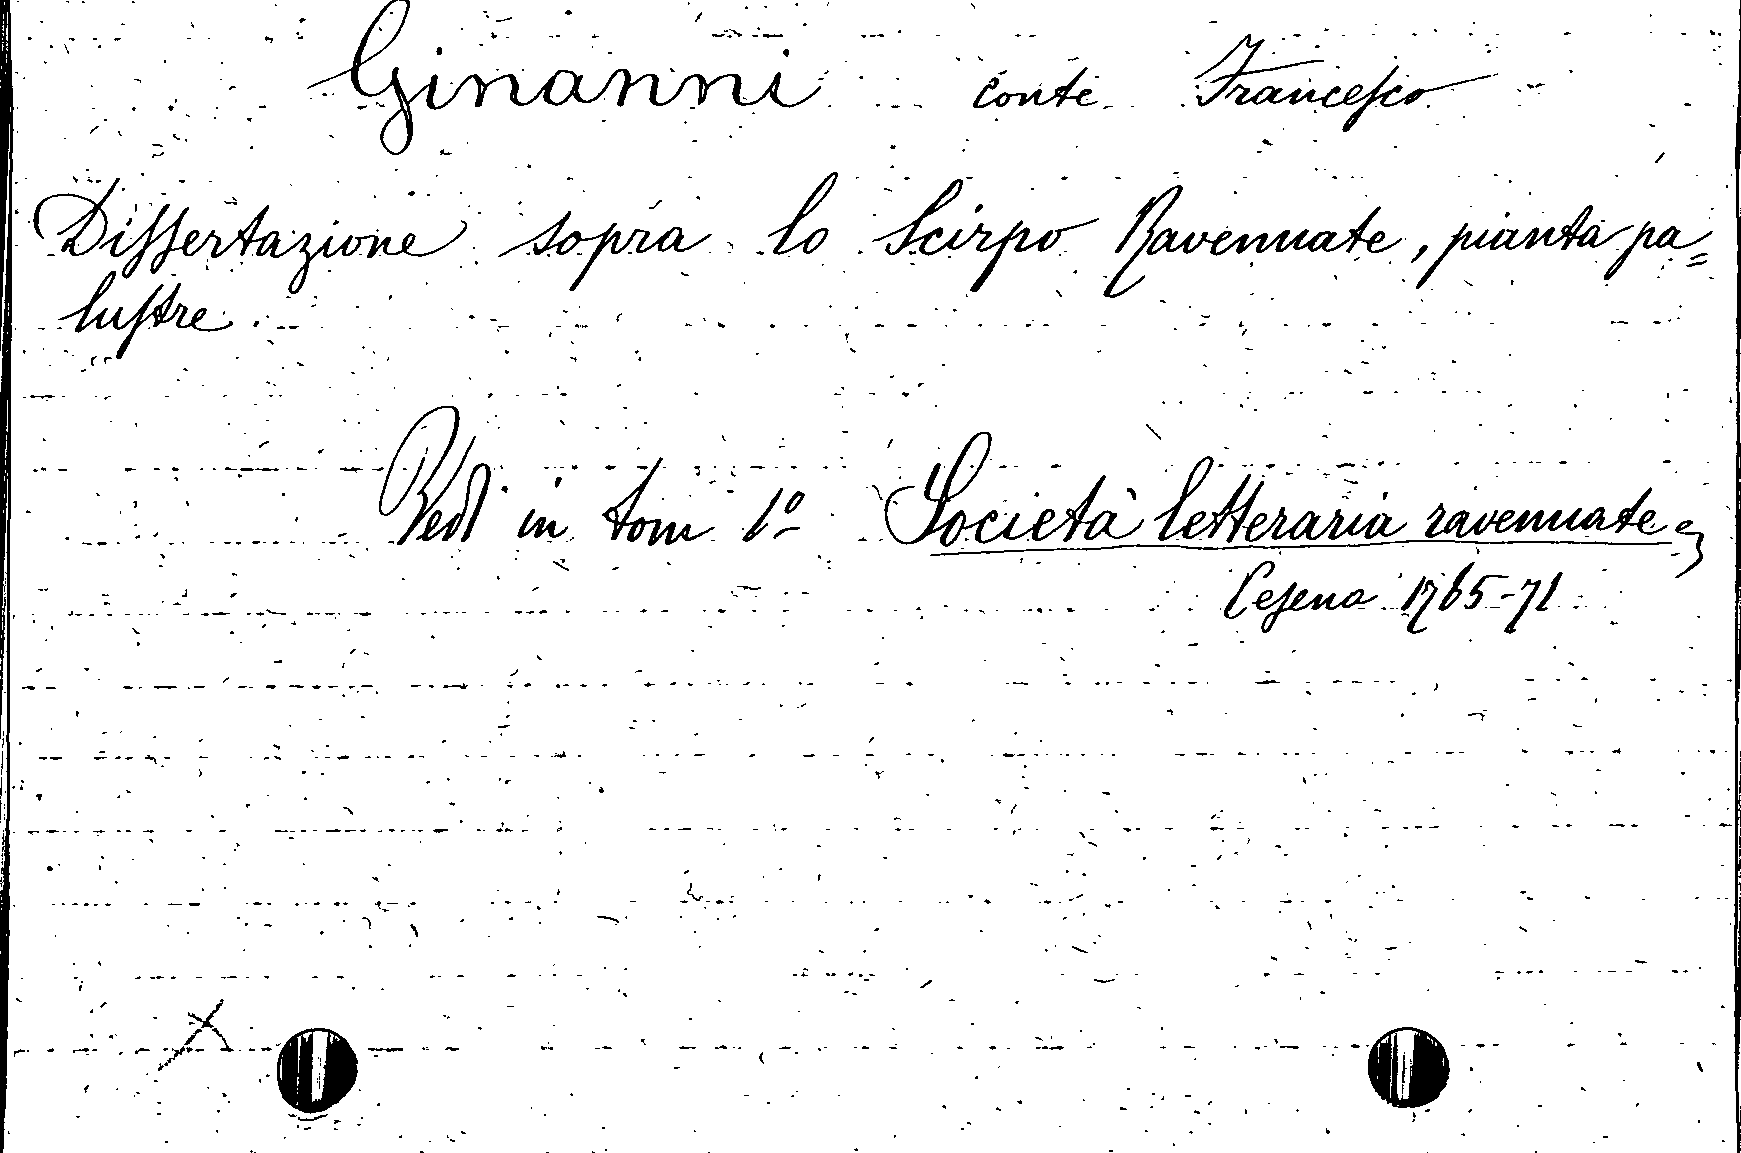 Ginanni conte Francesco
Dissertazione sopra lo Scirpo Ravennate, pianta pa=
lustre.
Vedi in tom 1º Società letteraria ravennate
Cesena 1765-71